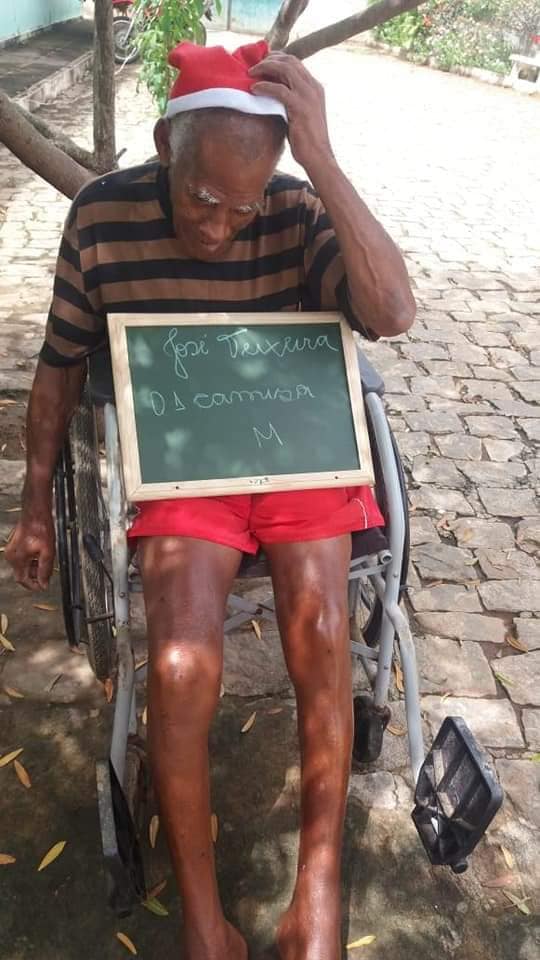 José Teixeira
01 camisa
M